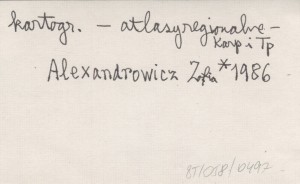 kartogr. – atlasy regionalne –
Karp i Tp
Alexandrowicz Zofia *1986